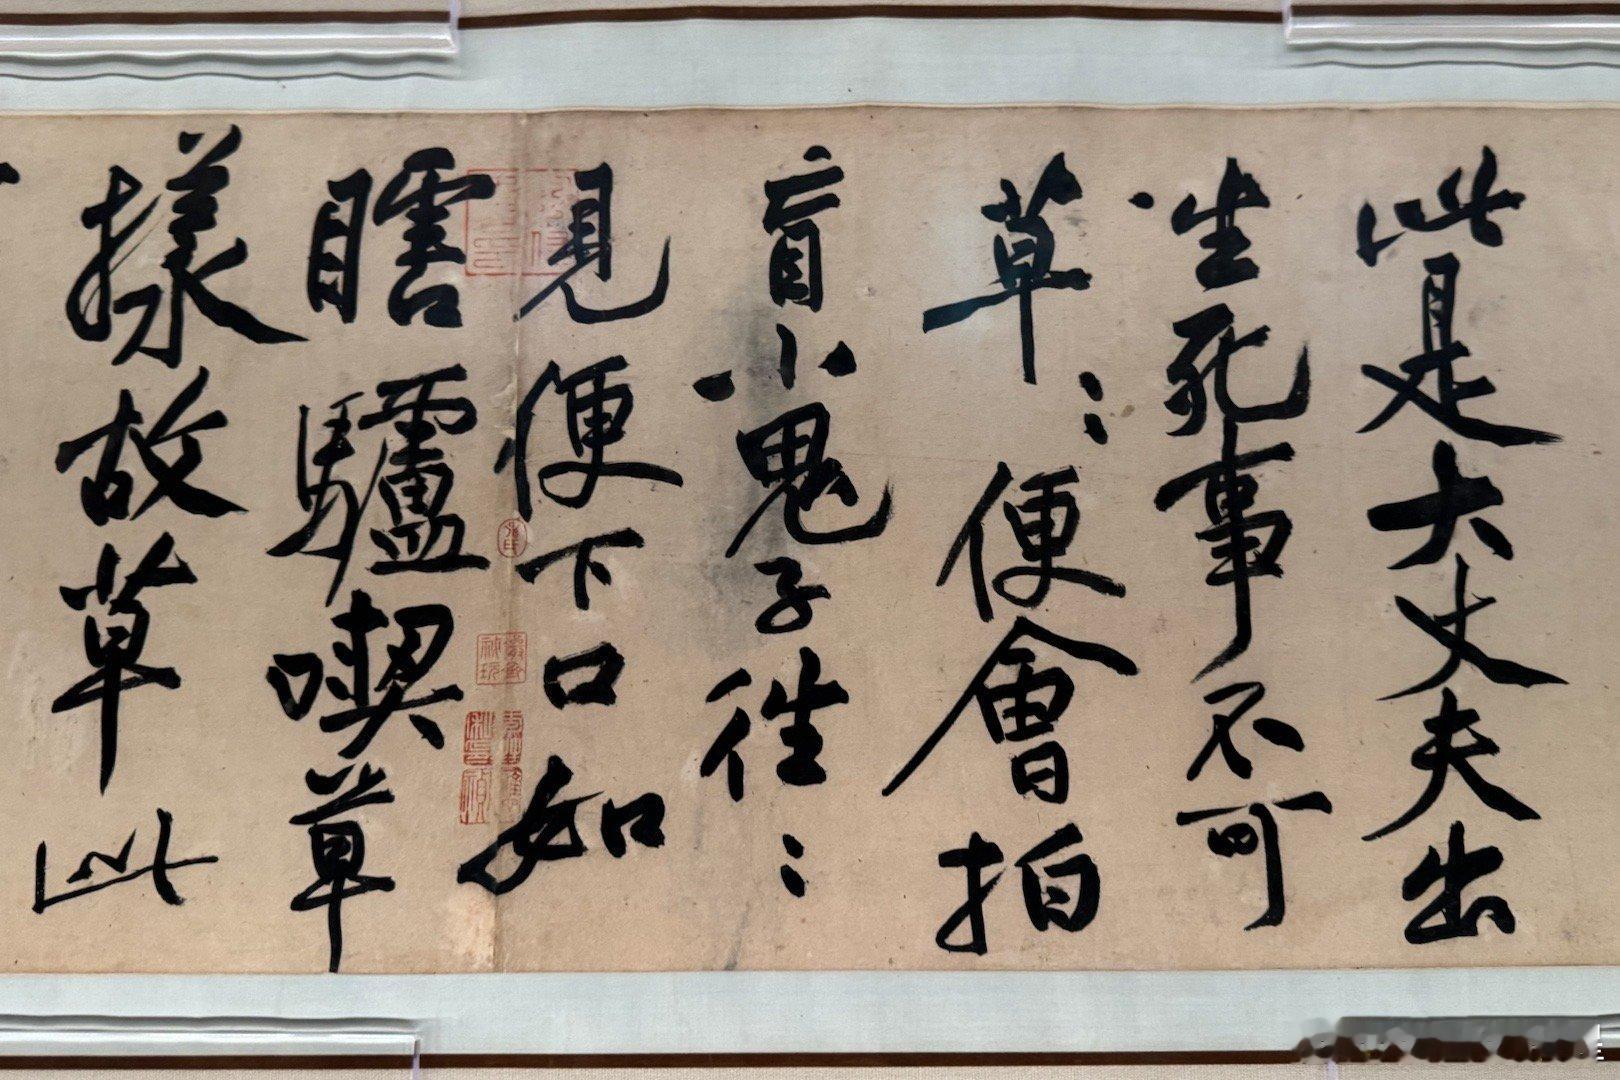 此是大丈夫出
生死事不可
草〻便會拍
盲小鬼子往〻
見便下口如
瞎驢喫草
㨾故草此